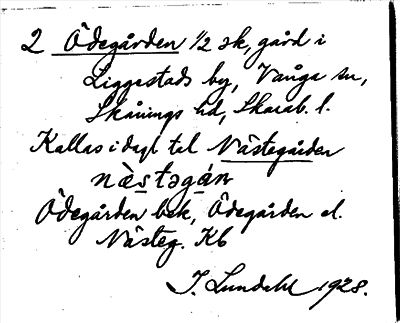 2 Ödegården 1/2 sk, gård i
Liggestads by, Vånga sn,
Skånings hd, Skarab. l.
Kallas i dagl. tal Nästegården
nästəgán
Ödegården bek, Ödegården el.
Nästeg. Kb
I. Lundahl 1928.